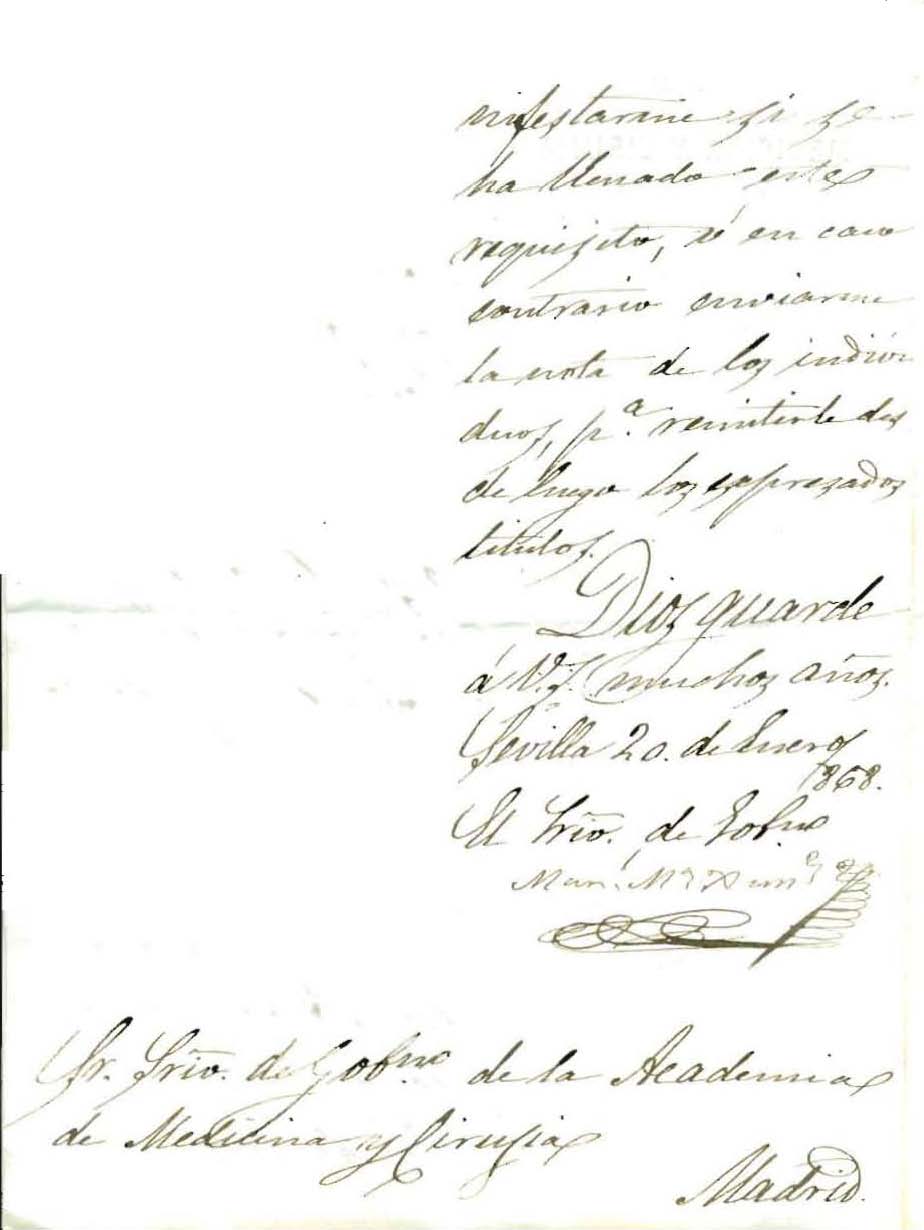 nifestarme si se
ha llenado este
requisito, ó en caso
contrario enviarme
la nota de los indivi
duos, p.ª remitirle des
de luego los espresados
titulos.
Dios guarde
á V.S. muchos años.
Sevilla 20. de Enero
1868.
El Srio. de Gobno
Man.l M.ª
Sr. Srio. de Gob.no de la Academia
de Medicina y Cirugia
Madrid.